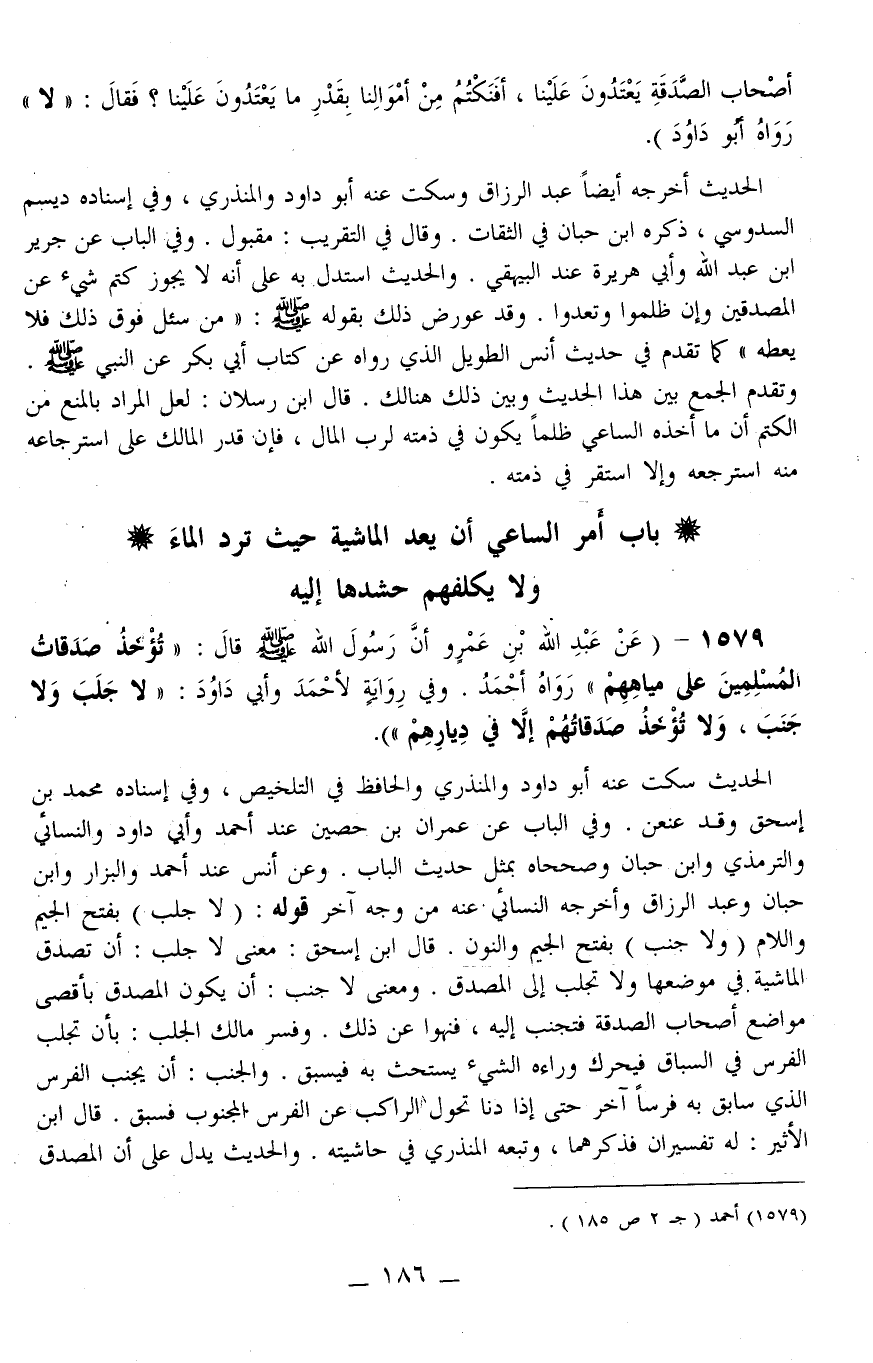 أصْحاب الصَّدَقَةِ يَعْتَدُونَ عَلَيْنا ، أفَنَكْتُمُ مِنْ أمْوَالِنا بِقَدْرِ ما يَعْتَدُونَ عَلَيْنا ؟ فَقالَ : « لا »
رَوَاهُ أبُو دَاوُدَ ).
الحديث أخرجه أيضاً عبد الرزاق وسكت عنه أبو داود والمنذري ، وفي إسناده ديسم
السدوسي ، ذكره ابن حبان في الثقات . وقال في التقريب : مقبول . وفي الباب عن جرير
ابن عبد الله وأبي هريرة عند البيهقي . والحديث استدل به على أنه لا يجوز كتم شيء عن
المصدقين وإن ظلموا وتعدوا . وقد عورض ذلك بقوله ﷺ : « من سئل فوق ذلك فلا
يعطه » كما تقدم في حديث أنس الطويل الذي رواه عن كتاب أبي بكر عن النبي ﷺ .
وتقدم الجمع بين هذا الحديث وبين ذلك هنالك . قال ابن رسلان : لعل المراد بالمنع من
الكتم أن ما أخذه الساعي ظلماً يكون في ذمته لرب المال ، فإن قدر المالك على استرجاعه
منه استرجعه وإلا استقر في ذمته .
باب أَمر الساعي أن يعد الماشية حيث ترد الماءَ
ولا يكلفهم حشدها إليه
١٥٧٩ - ( عَنْ عَبْدِ الله بْنِ عَمْرٍو أنَّ رَسُولَ الله ﷺ قالَ : « تُؤْخَذُ صَدَقاتُ
المُسْلِمِينَ على مياهِهِمْ » رَوَاهُ أحْمَدُ . وفي رِوَايَةٍ لأحْمَدَ وأبي دَاوُدَ : « لا جَلَبَ وَلا
جَنَبَ ، وَلا تُؤْخَذُ صَدَقاتُهُمْ إلَّا فِي دِيارِهِمْ »).
الحديث سكت عنه أبو داود والمنذري والحافظ في التلخيص ، وفي إسناده محمد بن
إسحق وقد عنعن . وفي الباب عن عمران بن حصين عند أحمد وأبي داود والنسائي
والترمذي وابن حبان وصححاه بمثل حديث الباب . وعن أنس عند أحمد والبزار وابن
حبان وعبد الرزاق وأخرجه النسائي عنه من وجه آخر قوله : ( لا جلب ) بفتح الجيم
واللام ( ولا جنب ) بفتح الجيم والنون . قال ابن إسحق : معنى لا جلب : أن تصدق
الماشية في موضعها ولا تجلب إلى المصدق . ومعنى لا جنب : أن يكون المصدق بأقصى
مواضع أصحاب الصدقة فتجنب إليه ، فنهوا عن ذلك . وفسر مالك الجلب : بأن تجلب
الفرس في السباق فيحرك وراءه الشيء يستحث به فيسبق . والجنب : أن يجنب الفرس
الذي سابق به فرساً آخر حتى إذا دنا تحول الراكب عن الفرس المجنوب فسبق . قال ابن
الأثير : له تفسيران فذكرهما ، وتبعه المنذري في حاشيته . والحديث يدل على أن المصدق
(١٥٧٩) أحمد ( جـ ٢ ص ١٨٥ ) .
— ١٨٦ —